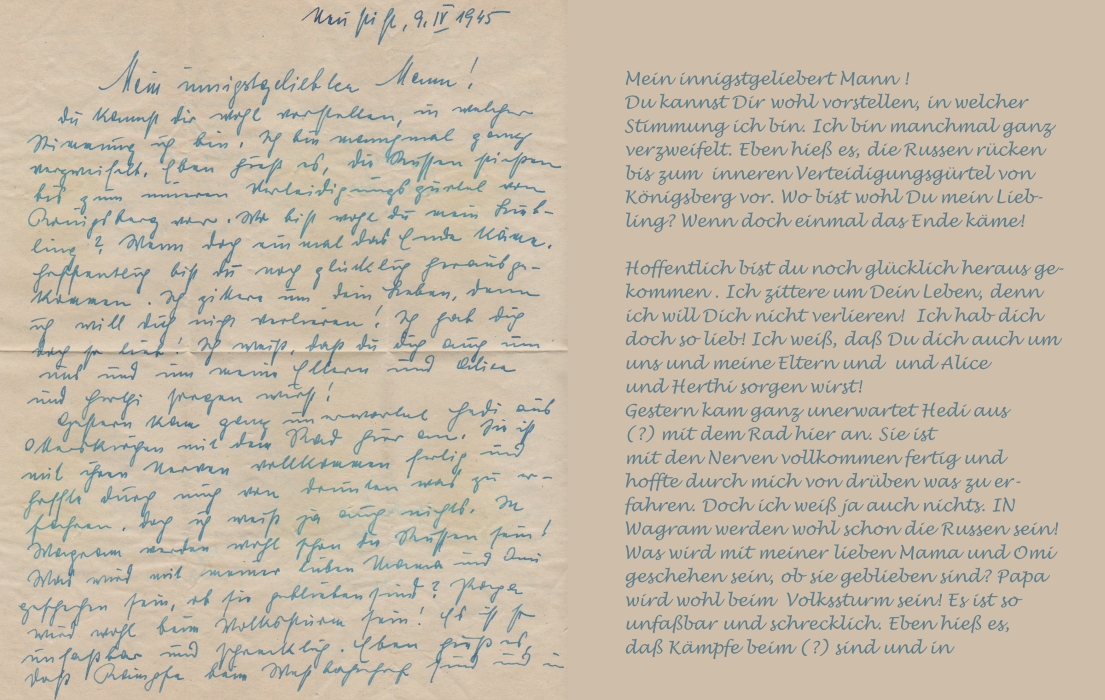 Neustift, 9. IV 1945
Mein innigstgeliebter Mann!
Du kannst dir wohl vorstellen, in welcher
Stimmung ich bin. Ich bin manchmal ganz
verzweifelt. Eben hieß es, die Russen stießen
bis zum inneren Verteidigungsgürtel von
Königsberg vor. Wo bist wohl du mein Lieb-
ling? Wenn doch einmal das Ende käme.
Hoffentlich bist du noch glücklich herausge-
kommen. Ich zittere um dein Leben, denn
ich will dich nicht verlieren! Ich hab dich
doch so lieb! Ich weiß, daß du dich auch um
uns und um meine Eltern und Alice
und Herthi sorgen wirst!
Gestern kam ganz unerwartet Hedi aus
mit dem Rad hier an. Sie ist
mit ihren Nerven vollkommen fertig und
hoffte durch mich von drunten was zu er-
fahren. Doch ich weiß ja auch nichts. In
Wagram werden wohl schon die Russen sein!
Was wird mit meiner lieben Mama und Omi
geschehen sein, ob sie geblieben sind? Papa
wird wohl beim Volkssturm sein! Es ist so
unfaßbar und schrecklich. Eben hieß es,
daß Kämpfe beim Westbahnhof sind und in
Mein innigstgeliebert Mann !
Du kannst Dir wohl vorstellen, in welcher
Stimmung ich bin. Ich bin manchmal ganz
verzweifelt. Eben hieß es, die Russen rücken
bis zum inneren Verteidigungsgürtel von
Königsberg vor. Wo bist wohl Du mein Lieb-
ling? Wenn doch einmal das Ende käme!
Hoffentlich bist du noch glücklich heraus ge-
kommen . Ich zittere um Dein Leben, denn
ich will Dich nicht verlieren! Ich hab dich
doch so lieb! Ich weiß, daß Du dich auch um
uns und meine Eltern und und Alice
und Herthi sorgen wirst!
Gestern kam ganz unerwartet Hedi aus
(?) mit dem Rad hier an. Sie ist
mit den Nerven vollkommen fertig und
hoffte durch mich von drüben was zu er-
fahren. Doch ich weiß ja auch nichts. IN
Wagram werden wohl schon die Russen sein!
Was wird mit meiner lieben Mama und Omi
geschehen sein, ob sie geblieben sind? Papa
wird wohl beim Volkssturm sein! Es ist so
unfaßbar und schrecklich. Eben hieß es,
daß Kämpfe beim (?) sind und in